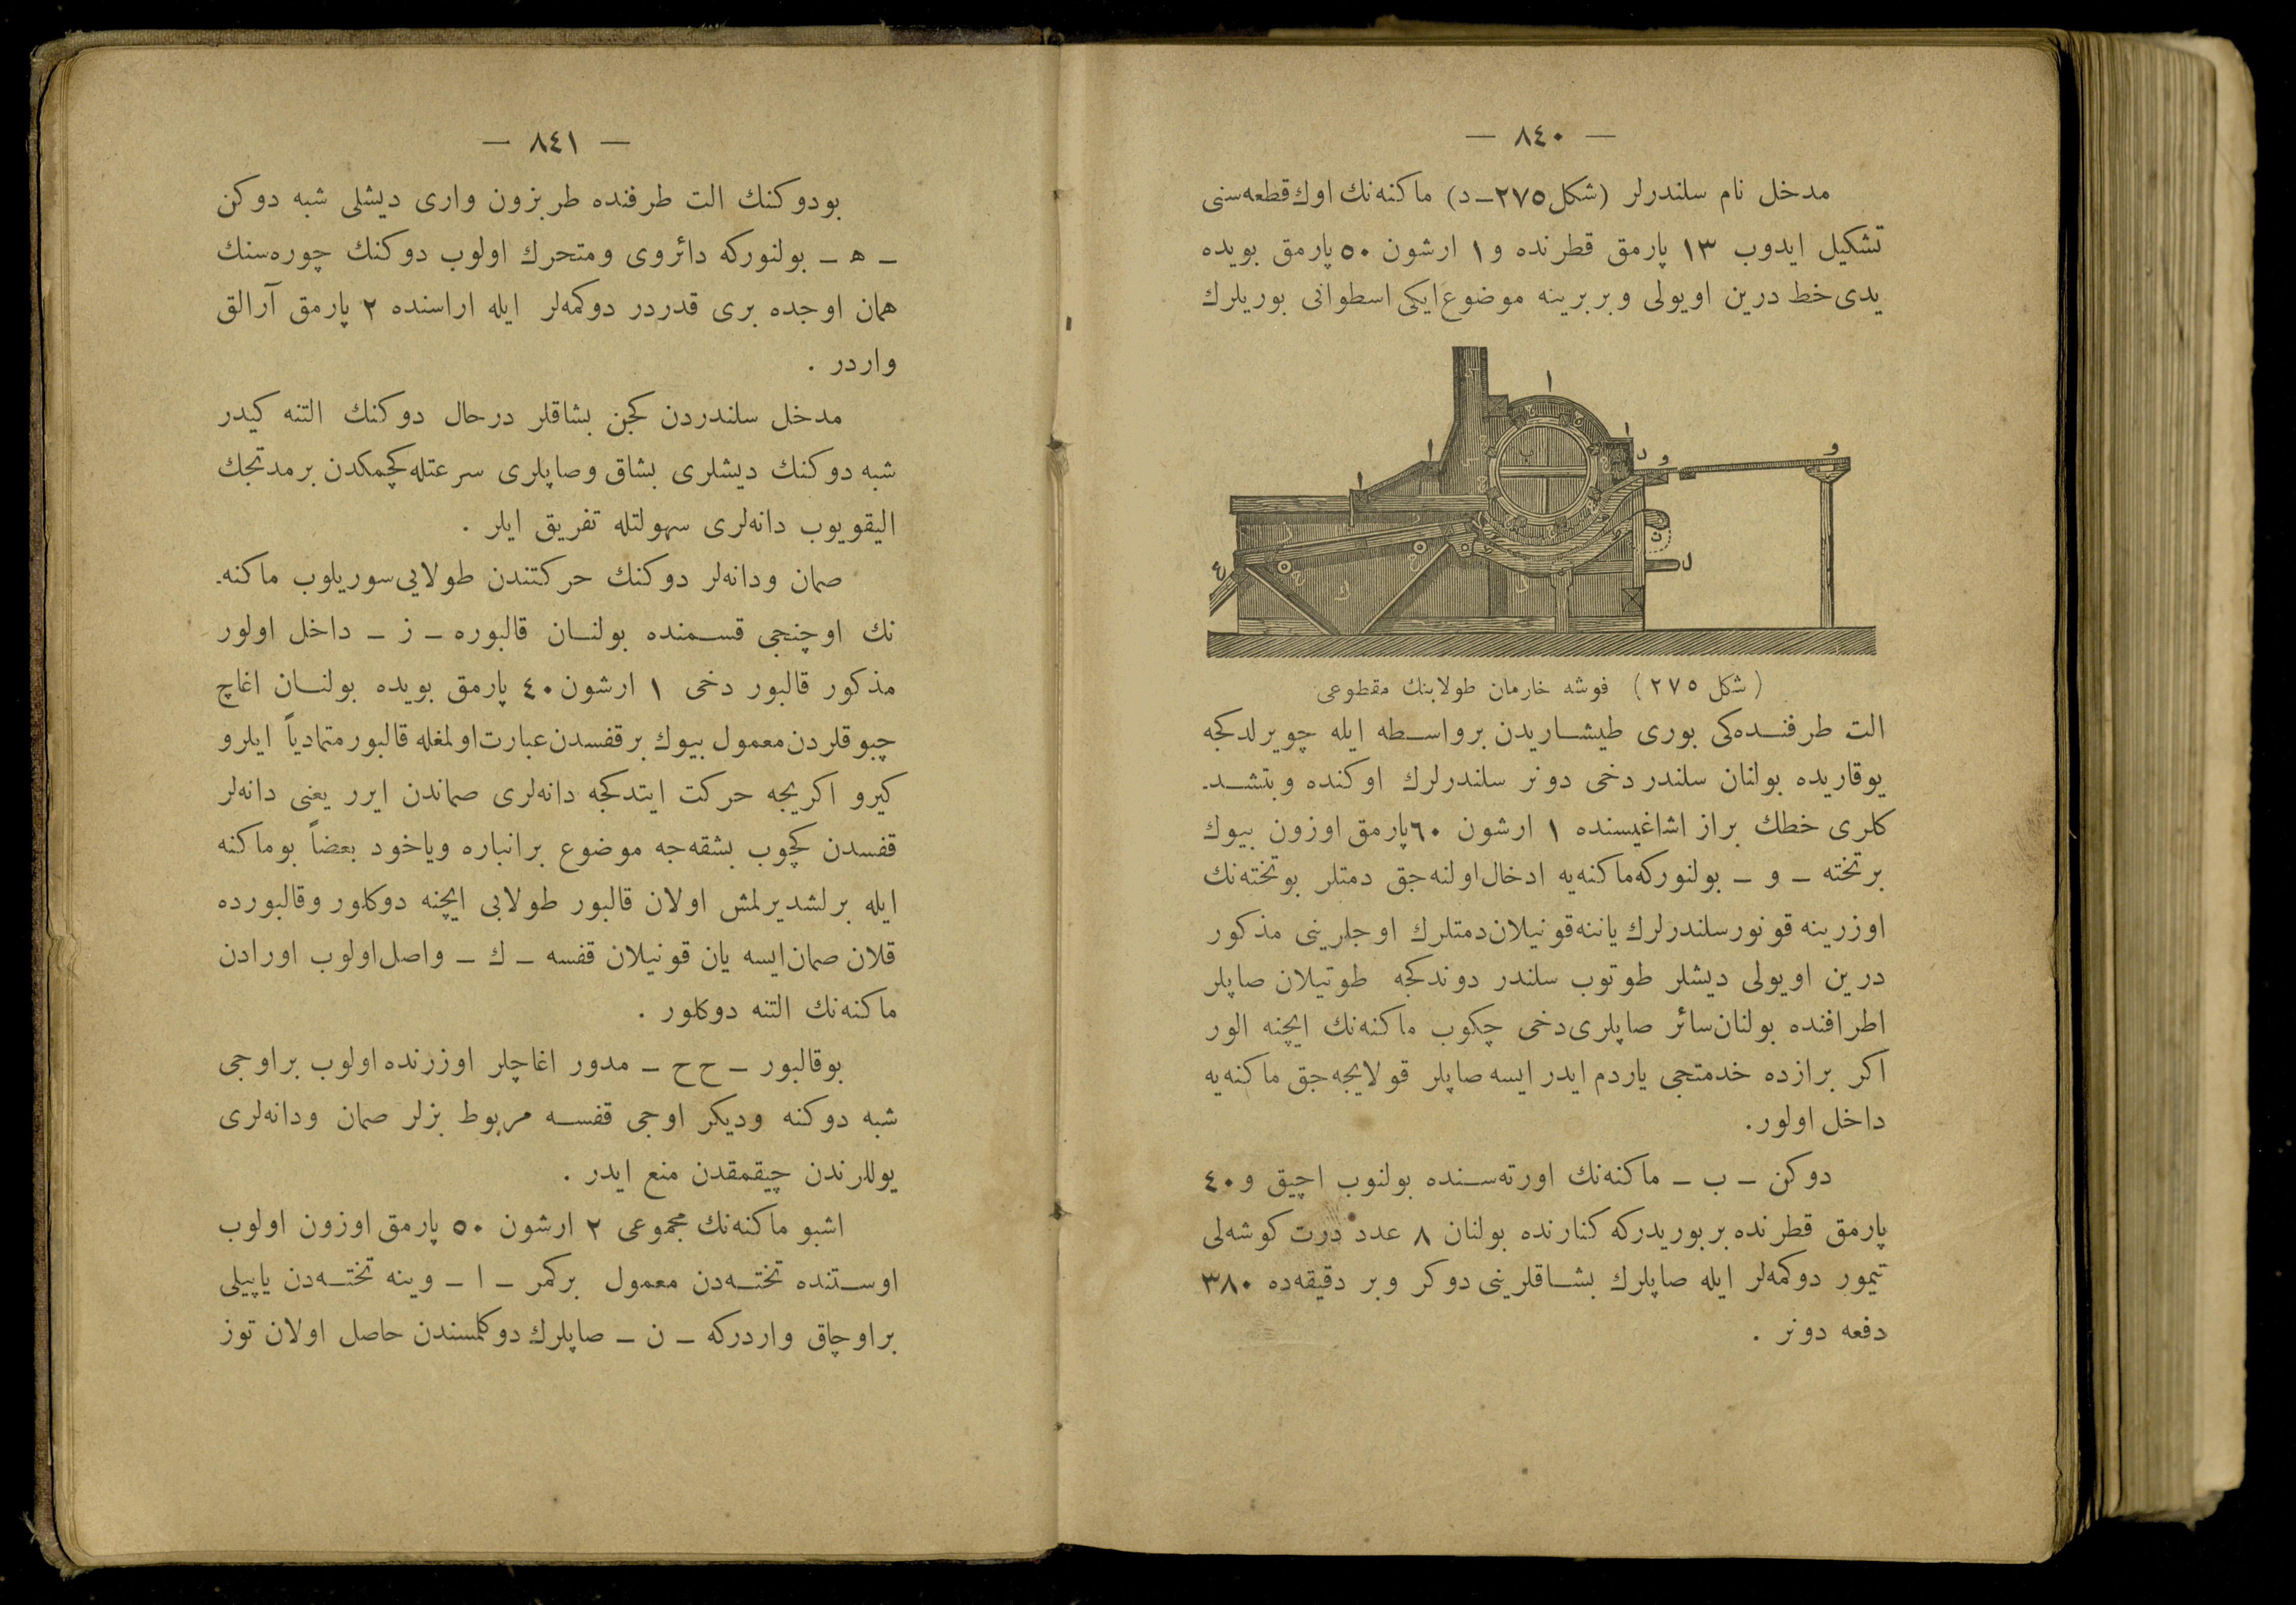 — ٨٤٠ —
مدخل نام سلندرلر (شكل ٢٧٥ – د) ماكنه‌نك اوك قطعه‌سنی
تشكیل ایدوب ١٣ پارمق قطرنده و ١ ارشون ٥٠ پارمق بویده
یدی خط درین اویولی و بربرینه موضوع ایكی اسطوانی بوریلرك
(شكل ٢٧٥) فوشه خارمان طولابنك مقطوعی
الت طرفنده‌كی بوری طیشاریدن برواسطه ایله چویرلدكجه
یوقاریده بولنان سلندر دخی دونر سلندرلرك اوكنده ویتشد‌ـ
كلری خطك براز اشاغیسنده ١ ارشون ٦٠ پارمق اوزون بیوك
برتخته – و – بولنوركه ماكنه‌یه ادخال اولنه‌جق دمتلر بوتخته‌نك
اوزرینه قونور سلندرلرك یاننه قونیلان دمتلرك اوجلرینی مذكور
درین اویولی دیشلر طوتوب سلندر دوندكجه طوتیلان صاپلر
اطرافنده بولنان سائر صاپلری دخی چكوب ماكنه‌نك ایچنه الور
اكر برازده خدمتجی یاردم ایدر ایسه صاپلر قولایجه‌جق ماكنه‌یه
داخل اولور.
دوكن – ب – ماكنه‌نك اورته‌سنده بولنوب اچیق و ٤٠
پارمق قطرنده بربوریدركه كنارنده بولنان ٨ عدد درت كوشه‌لی
تیمور دوكمه‌لر ایله صاپلرك بشاقلرینی دوكر وبر دقیقه‌ده ٣٨٠
دفعه دونر .
— ٨٤١ —
بودوكنك الت طرفنده طربزون واری دیشلی شبه دوكن
– ه – بولنوركه دائروی ومتحرك اولوب دوكنك چوره‌سنك
همان اوجده بری قدردر دوكمه‌لر ایله اراسنده ٢ پارمق آرالق
واردر .
مدخل سلندردن كچن بشاقلر درحال دوكنك التنه كیدر
شبه دوكنك دیشلری بشاق وصاپلری سرعتله كچمكدن برمدتجك
الیقویوب دانه‌لری سهولتله تفریق ایلر .
صمان ودانه‌لر دوكنك حركتندن طولایی سوریلوب ماكنه‌ـ
نك اوچنجی قسمنده بولنان قالبوره – ز – داخل اولور
مذكور قالبور دخی ١ ارشون ٤٠ پارمق بویده بولنان اغاچ
چبوقلردن معمول بیوك برقفسدن عبارت اولمغله قالبور متمادیاً ایلرو
كیرو اكریجه حركت ایتدكجه دانه‌لری صماندن ایرر یعنی دانه‌لر
قفسدن كچوب بشقه‌جه موضوع برانباره ویاخود بعضاً بوماكنه
ایله برلشدیرلمش اولان قالبور طولابی ایچنه دوكلور وقالبورده
قلان صمان ایسه یان قونیلان قفسه – ك – واصل اولوب اورادن
ماكنه‌نك التنه دوكلور .
بوقالبور – ح ح – مدور اغاچلر اوزرنده اولوب براوجی
شبه دوكنه ودیكر اوجی قفسه مربوط بزلر صمان ودانه‌لری
یوللرندن چیقمقدن منع ایدر .
اشبو ماكنه‌نك مجموعی ٢ ارشون ٥٠ پارمق اوزون اولوب
اوستنده تخته‌دن معمول بركمر – ا – وینه تخته‌دن یاپیلی
براوجاق واردركه – ن – صاپلرك دوكلمسندن حاصل اولان توز